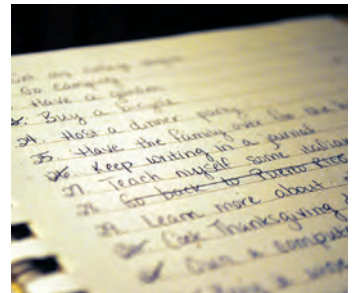 Go camping
Have a garden
Buy a bicycle
24. Host a dinner party
25. Have the family over for the
26. Keep writing in a journal
27. Teach myself some italian
28. Go back to Puerto Rico
29. Learn more about
Cook Thanksgiving
Own a compute